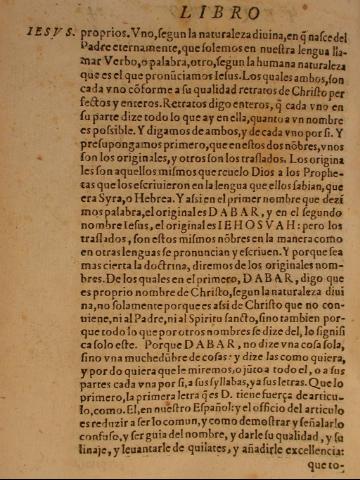 LIBRO
IESVS.
proprios. Vno, segun la naturaleza diuina, en q̃ nasce del
Padre eternamente, que solemos en nuestra lengua lla-
mar Verbo, o palabra, otro, segun la humana naturaleza
que es el que pronũciamos Iesus. Los quales ambos, son
cada vno cõforme a su qualidad retratos de Christo per
fectos y enteros. Retratos digo enteros, q̃ cada vno en
su parte dize todo lo que ay en ella, quanto a vn nombre
es possible. Y digamos de ambos, y de cada vno por si. Y
presupongamos primero, que en estos dos nõbres, vnos
son los originales, y otros son los traslados. Los origina
les son aquellos mismos que reuelo Dios a los Prophe-
tas que los escriuieron en la lengua que ellos sabian, que
era Syra, o Hebrea. Y assi en el primer nombre que dezi
mos palabra, el original es DABAR, y en el segundo
nombre Iesus, el original es IEHOSVAH: pero los
traslados, son estos mismos nõbres en la manera como
en otras lenguas se pronuncian y escriuen. Y porque sea
mas cierta la doctrina, diremos de los originales nom-
bres. De los quales en el primero, DABAR, digo que
es proprio nombre de Christo, segun la naturaleza diui
na, no solamente porque es assi de Christo que no con-
uiene, ni al Padre, ni al Spiritu sancto, sino tambien por-
que todo lo que por otros nombres se dize del, lo signifi
ca solo este. Porque DABAR, no dize vna cosa sola,
sino vna muchedũbre de cosas: y dize las como quiera,
y por do quiera que le miremos, o jũto a todo el, o a sus
partes cada vna por si, a sus syllabas, ya sus letras. Que lo
primero, la primera letra q̃ es D. tiene fuerça de articu-
lo, como. El, en nuestro Español: y el officio del articulo
es reduzir a ser lo comun, y como demostrar y señalar lo
confuso, y ser guia del nombre, y darle su qualidad, y su
linaje, y leuantarle de quilates, y añadirle excellencia:
que to-